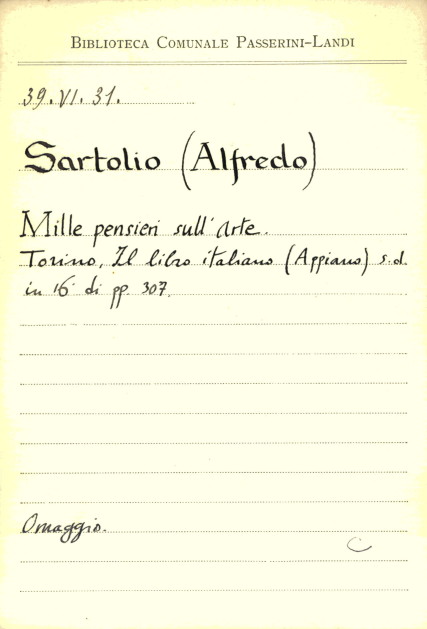 BIBLIOTECA COMUNALE PASSERINI-LANDI
39.VI.31.
Sartolio (Alfredo)
Mille pensieri sull'Arte.
Torino, Il libro italiano (Appiano) s.d.
in 16° di pp. 307.
Omaggio.
C